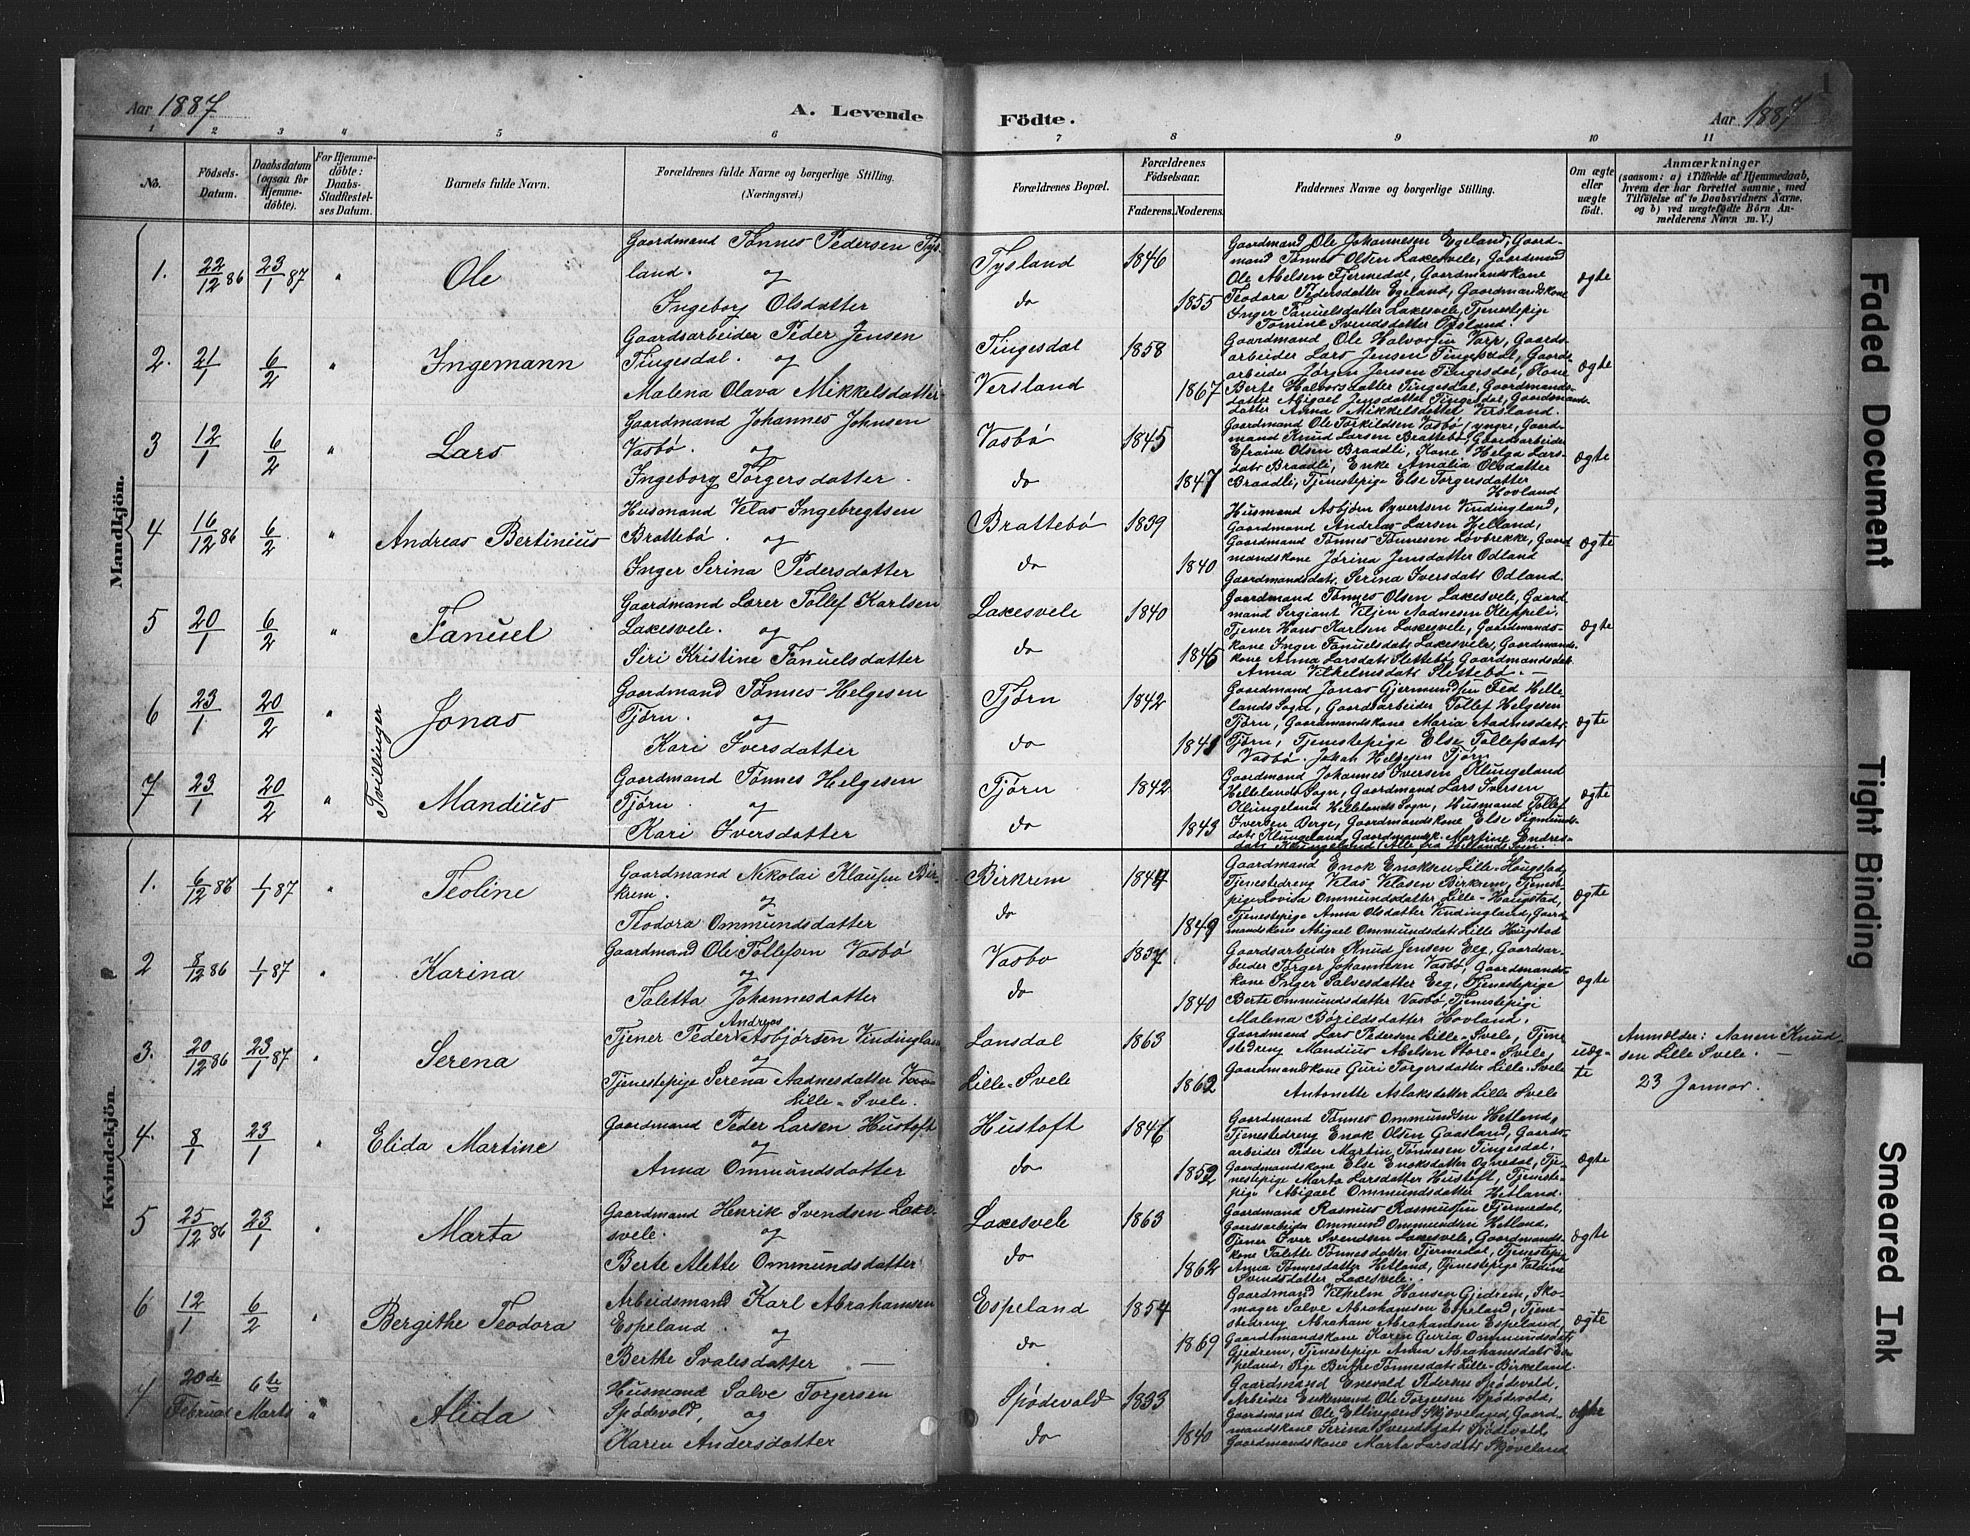 Aar 1887
A. Levende
Födte.
Aar 1887
1
1 2 3 4 5 6 7 8 9 10 11
No.
Födsels-
Datum.
Daabsdatum
(ogsaa for
Hjemme-
döbte).
For Hjemme-
döbte:
Daabs-
Stadfæstel-
ses Datum.
Barnets fulde Navn.
Forældrenes fulde Navne og borgerlige Stilling.
(Næringsvei.)
Forældrenes Bopæl.
Forældrenes
Födselsaar.
Faderens. Moderens.
Faddernes Navne og borgerlige Stilling.
Om ægte
eller
uægte
födt.
Anmærkninger
(saasom: a) i Tilfælde af Hjemmedaab,
hvem der har forrettet samme, med
Tilföielse af to Daabsvidners Navne,
og b) ved uægtefödte Börn An-
melderens Navn m. V.)
Mandkjön.
1. 22/12 86 23/1 87 " Ole
Gaardmand Tønnes Pedersen Tys-
land. og
Ingeborg Olsdatter
Tysland 1846
do 1855
Gaardmand Ole Johannesen Egeland, Gaard-
mand Tønnes Olsen Laxesvele, Gaardmand
Ole Abelsen Fjermedal, Gaardmandskone
Teodora Pedersdatter Egeland, Gaardmandskone
Inger Tanuelsdatter Laxesvele, Tjenestepige
Tomine Svendsdatter Tysland.
ægte
2. 21/1 6/2 " Ingemann
Gaardsarbeider Peder Jensen
Tingesdal. og
Malena Olava Mikkelsdatter
Tingesdal 1858
Versland 1867
Gaardmand Ole Halvorsen Varp, Gaards-
arbeider Lars Jensen Tingesdal, Gaards-
arbeider Jørgen Jensen Tingesdal, Kone
Berte Halvorsdatter Tingesdal, Gaardmands-
datter Abigael Jensdatter Tingesdal, Gaardmands-
datter Anna Mikkelsdatter Versland.
ægte
3 12/1 6/2 " Lars
Gaardmand Johannes Johnsen
Vasbø. og
Ingeborg Torgersdatter.
Vasbø 1845
do 1847
Gaardmand Ole Torkildsen Vasbø (yngre, Gaard-
mand Knud Larsen Brattebø, Gaardsarbeider
Efraim Olsen Braadli, Kone Helga Lars-
dats Braadli, Enke Amalia Olsdatter
Braadli, Tjenestepige Else Torgersdatter
Hovland
ægte
4 16/12 86 6/2 " Andreas Bertinius
Husmand Velas Ingebregtsen
Brattebø. og
Inger Serina Pedersdatter
Brattebø 1839
do 1840
Husmand Asbjørn Syvertsen Vindingland,
Gaardmand Andreas Larsen Helland,
Gaardmand Tønnes Tønnesen Løvbrekke, Gaard-
mandskone Jørina Jensdatter Odland
Gaardmandsdats. Serina Iversdats Odland.
ægte
5 20/1 6/2 " Tanuel
Gaardmand Lærer Tollef Karlsen
Laxesvele. og
Siri Kristine Tanuelsdatter
Laxesvele 1840
do 1845
Gaardmand Tønnes Olsen Laxesvele, Gaard-
mand Sergiant Viljen Aadnesen Kleppeli,
Tjener Hans Karlsen Laxesvele, Gaardmands-
kone Inger Tanuelsdats Laxesvele, Gaardmands-
kone Anna Larsdats Slettebø, Gaardmandsdat
Anna Vilhelmsdats Slettebø.
ægte
Tvillinger
6 23/1 20/2 " Jonas
Gaardmand Tønnes Helgesen
Tjørn. og
Kari Iversdatter
Tjørn 1842
do 1843
Gaardmand Jonas Gjermundsen Fed Helle-
lands Sogn, Gaardsarbeider Tollef Helgesen
Tjørn, Gaardmandskone Maria Aadnesdats
Tjørn, Tjenestepige Else Tollefsdats
Vasbø. Johan Helgesen Tjørn
ægte
7 23/1 20/2 " Mandius
Gaardmand Tønnes Helgesen
Tjørn. og
Kari Iversdatter
Tjørn 1842
do 1843
Gaardmand Johannes Iversen Klungeland
Hellelands Sogn, Gaardmand Lars Iversen
Klungeland Hellelands Sogn, Husmand Tollef
Iversen Berge, Gaardmandskone Else Sigmunds-
dats Klungeland, Gaardmandsk. Martine Endres-
dats Klungeland, Alle fra Hellands Sogn.
ægte
Kvindekjön.
1. 6/12 86 1/1 87 " Teoline
Gaardmand Nikolai Klausen Bir-
krem. og
Teodora Ommundsdatter
Birkrem 1847
do 1849
Gaardmand Enok Enoksen Lille-Haugstad,
Tjenestedreng Velas Velasen Birkrem, Tjeneste-
pige Lovisa Ommundsdatter Lille-Haugstad,
Tjenestepige Anna Olsdatter Vindingland, Gaard-
mandskone Abigael Ommundsdats Lille Haugstad
ægte
2 8/12 86 1/1 87 " Karina
Gaardmand Ole Tollefsen Vasbø
og
Taletta Johannesdatter
Vasbo 1837
do 1840
Gaardsarbeider Knud Jensen Eeg, Gaardsar-
beider Torger Johannesen Vasbø, Gaardmands-
kone Inger Salvesdatter Eeg, Tjenestepige
Berte Ommundsdatter Vasbø, Tjenestepige
Malena Børildsdatter Hovland.
ægte
3. 20/12 86 23/1 87 " Serena
Tjener Peder Andreas Asbjørsen Vindingland
og
Tjenestepige Serena Aadnesdatter
Lille-Svele.
Lansdal 1863
Lille-Svele 1862
Gaardmand Lars Pedersen Lille-Svele, Tjene-
stedreng Mandius Abelsen Store-Svele,
Gaardmandskone Guri Torgersdatter Lille-Svele
Antonette Aslaksdatter Lille Svele
uæg-
te
Anmelder: Aanen Knud-
sen Lille Svele.
23 Januar.
4. 8/1 23/1 " Elida Martine
Gaardmand Peder Larsen Hustoft
og
Anna Ommundsdatter
Hustoft 1846
do 1852
Gaardmand Tønnes Ommundsen Hetland,
Tjenestedreng Enok Olsen Gaasland, Gaards-
arbeider Peder Martin Tønnesen Tingesdal,
Gaardmandskone Else Enoksdatter Ognedal, Tje-
nestepige Marta Larsdatter Hustoft, Tjeneste-
pige Abigael Ommundsdatter Hetland.
ægte
5 25/12 86 23/1 " Marta
Gaardmand Henrik Svendsen Laxe-
svele. og
Berte Alette Ommundsdatter
Laxesvele 1863
do 1862
Gaardmand Rasmus Rasmussen Fjermedal,
Gaardsarbeider Ommund Ommundsen Hetland,
Tjener Over Svendsen Laxesvele, Gaardmands-
kone Talette Tønnesdatter Fjermedal, Tjenestepige
Anna Tønnesdatter Hetland, Tjenestepige Valdine
Svendsdatter Laxesvele.
ægte
6 12/1 6/2 " Bergithe Teodora
Arbeidsmand Karl Abrahamsen
Espeland. og
Berthe Svalesdatter —
Espeland 1854
do 1869
Gaardmand Vilhelm Hansen Gjedrem, Sko-
mager Salve Abrahamsen Espeland, Tjene-
stedreng Abraham Abrahamsen Espeland,
Gaardmandskone Karen Guria Ommundsdat,
Gjedrem, Tjenestepige Anna Abrahamsdats Es-
peland, Pige Berthe Tønnesdats Lille-Birkeland
ægte
7 20de Februar 6te Marts " Alida
Husmand Salve Torgersen
Spødevold, og
Karen Andersdatter
Spødevold 1833
do 1840
Gaardmand Enevald Pedersen Spødevold,
Arbeider Enkemand Ole Torgersen Spødevold,
Gaardmand Ole Ellingsen Skjæveland, Gaard-
mandskone Serina Svendsdats Spødevold,
Gaardmandskone Marta Larsdats Skjæveland
ægte
Faded Document
Tight Binding
Smeared Ink